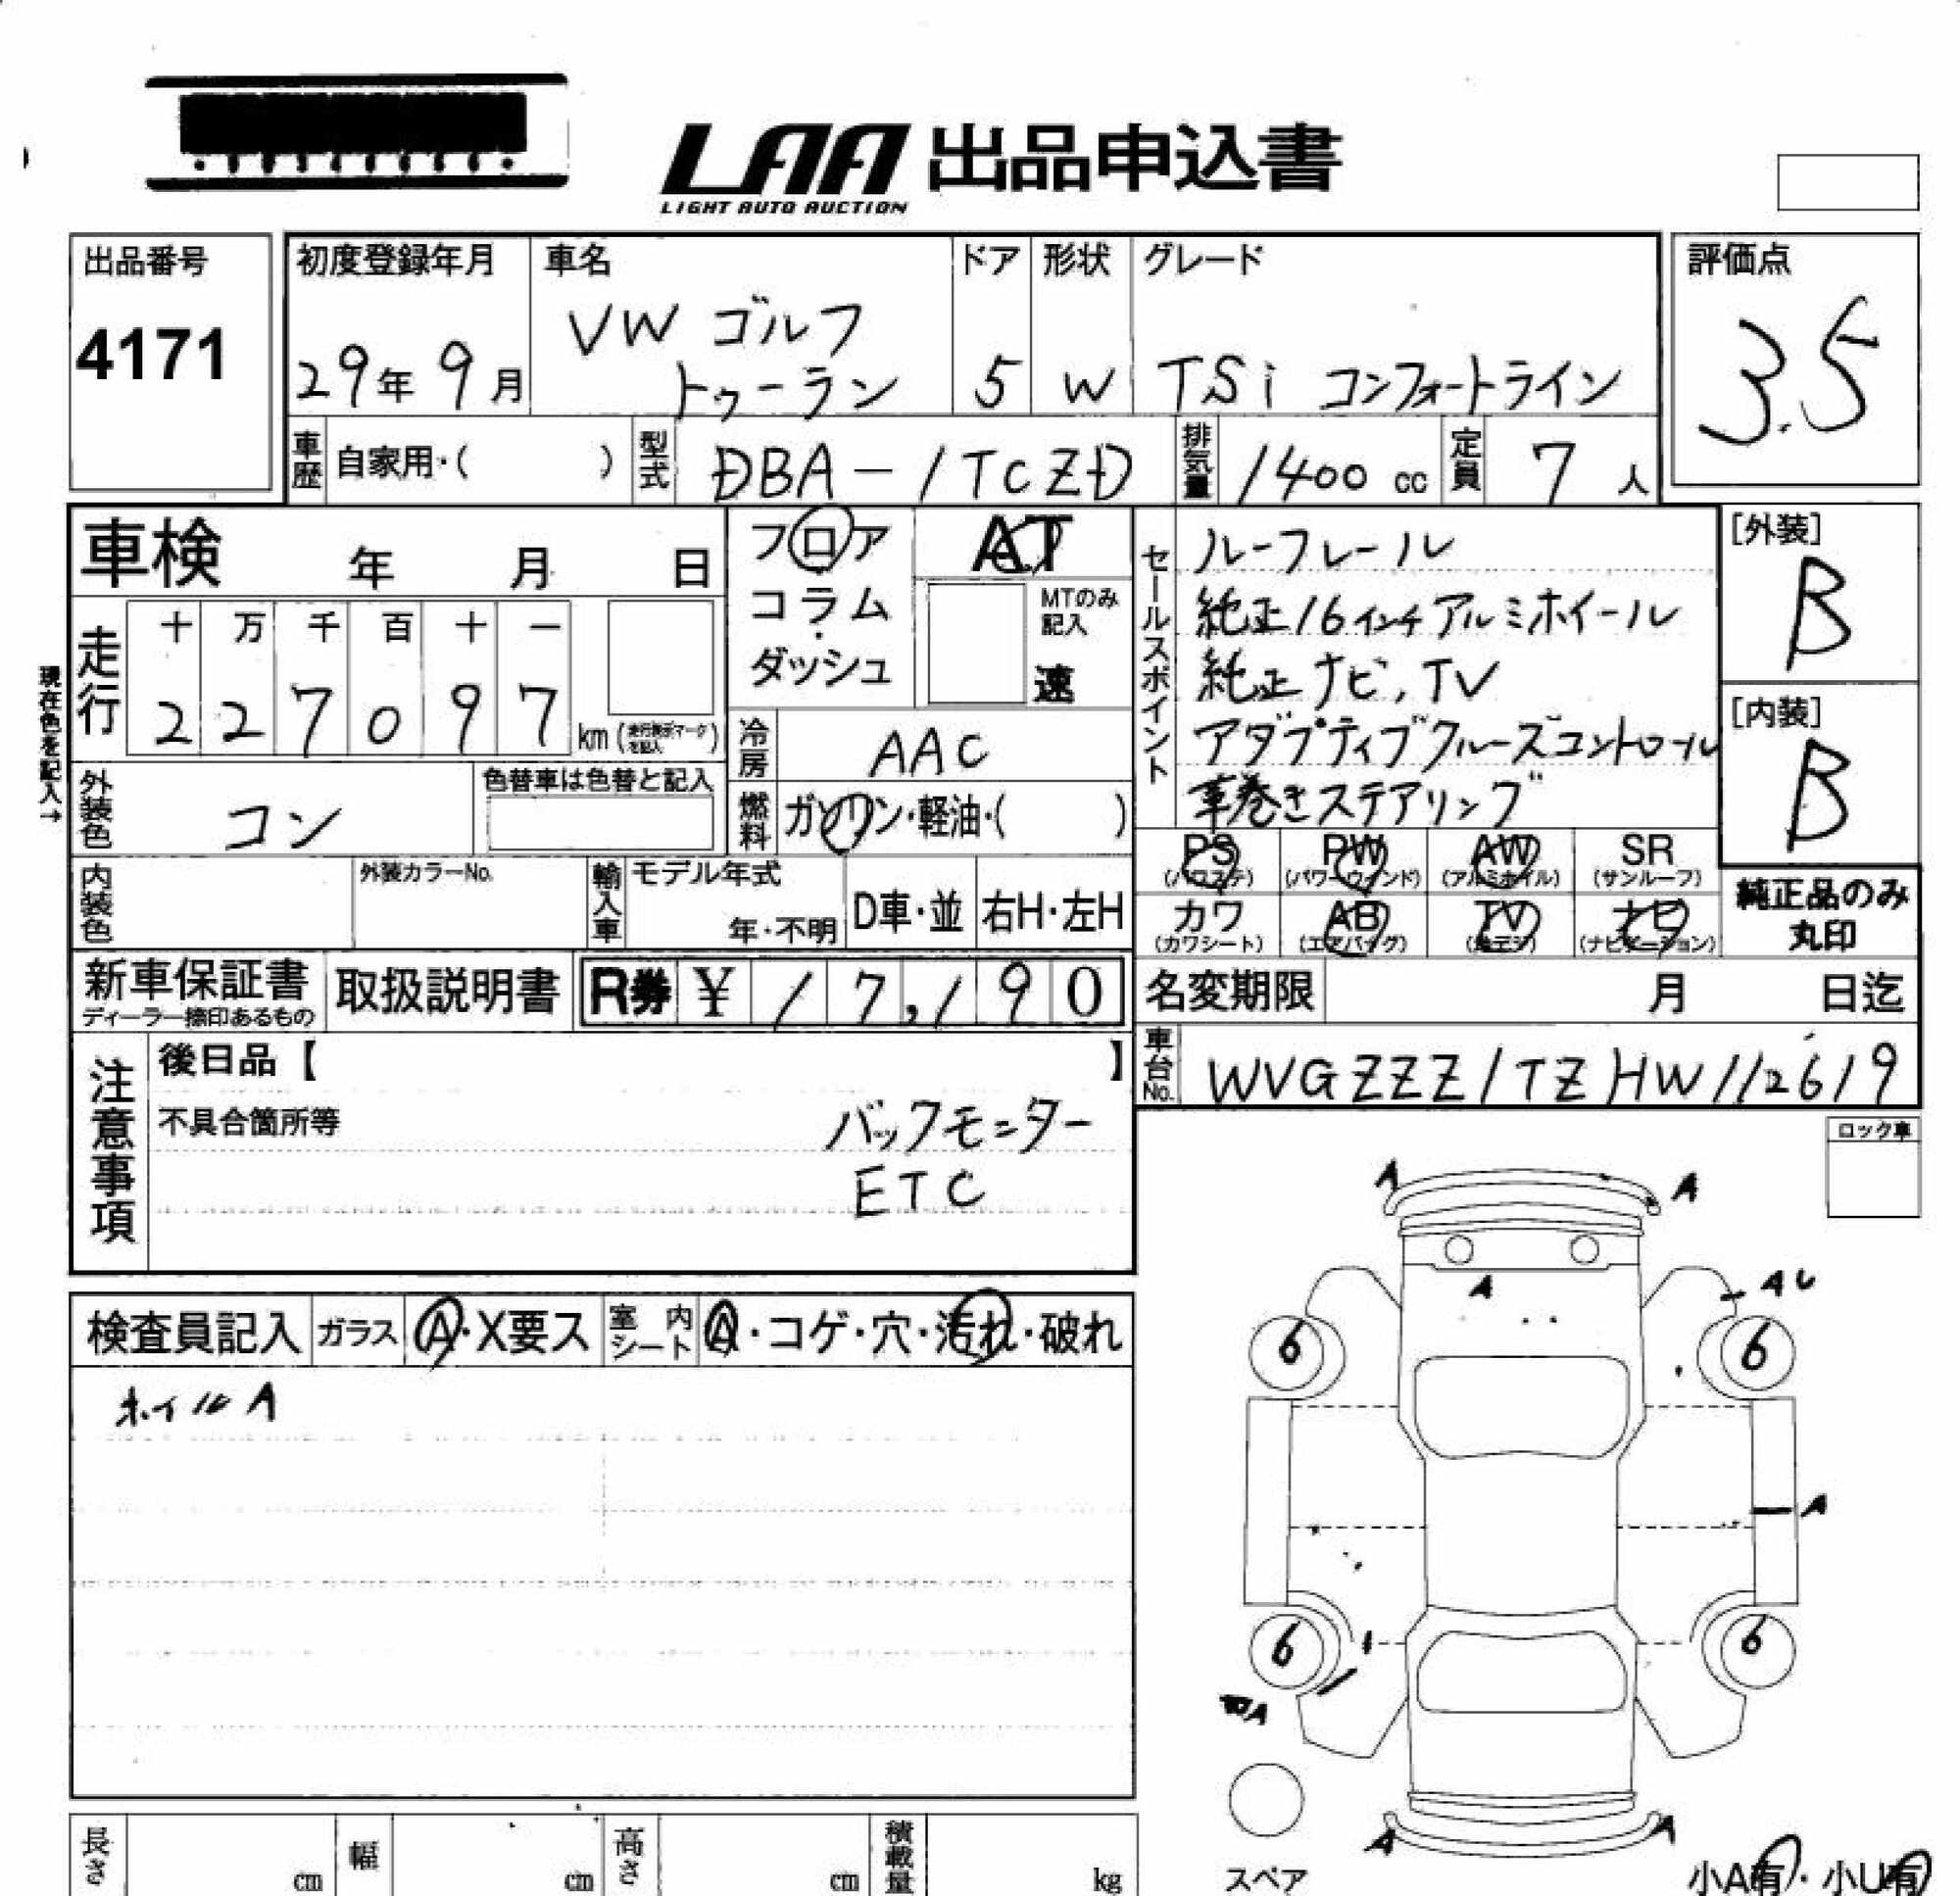 LAA 出品申込書
LIGHT AUTO AUCTION
出品番号
4171
初度登録年月
29年 9月
車名
VW ゴルフ
トゥーラン
ドア
5
形状
W
グレード
TSi コンフォートライン
評価点
3.5
車歴 自家用・( )
型式 DBA-1TCZD
排気量 1400 cc
定員 7 人
車検 年 月 日
フロア
コラム
・
ダッシュ
AT
MTのみ
記入
速
走行
十 万 千 百 十 一
2 2 7 0 9 7 km
現在色を記入→
冷房 AAC
外装色 コン
色替車は色替と記入
燃料 ガソリン・軽油・( )
内装色
外装カラーNo.
輸入車
モデル年式
年・不明
D車・並
右H・左H
セールスポイント
ルーフレール
純正16インチアルミホイール
純正ナビ,TV
アダプティブクルーズコントロール
革巻きステアリング
[外装]
B
[内装]
B
PS PW AW SR
(パワステ) (パワーウィンド) (アルミホイル) (サンルーフ)
カワ AB TV ナビ
(カワシート) (エアバッグ) (地デジ) (ナビゲーション)
純正品のみ
丸印
新車保証書
ディーラー捺印あるもの
取扱説明書
R券 ¥ 17,190
名変期限 月 日迄
車台No. WVGZZZ1TZHW112619
注意事項
後日品【 】
不具合箇所等
バックモニター
ETC
ロック車
検査員記入 ガラス A・X要ス 室内シート A・コゲ・穴・汚れ・破れ
ホイルA
A A
A
AU
6 6
A
6 6
A
A A
スペア
小A有・小U有
長さ cm 幅 cm 高さ cm 積載量 kg